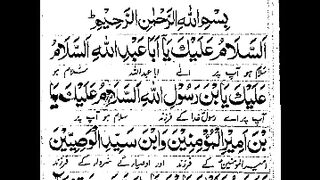 بِسْمِ اللهِ الرَّحْمٰنِ الرَّحِيْمِ
اَلسَّلَامُ عَلَيْكَ يَا اَبَا عَبْدِ اللهِ اَلسَّلَامُ
سلام ہو آپ پر اے ابا عبداللہ سلام ہو
عَلَيْكَ يَا بْنَ رَسُوْلِ اللهِ اَلسَّلَامُ عَلَيْكَ يَا
آپ پر اے رسول خدا کے فرزند سلام ہو آپ پر اے
بْنَ اَمِيْرِ الْمُؤْمِنِيْنَ وَابْنَ سَيِّدِ الْوَصِيِّيْنَ
امیر المومنین کے فرزند اور اوصیاء کے سردار کے فرزند